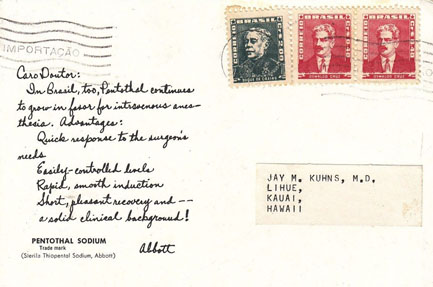 IMPORTAÇÃO
CORREIO BRASIL
DUQUE DE CAXIAS
CORREIO BRASIL
OSWALDO CRUZ
CORREIO BRASIL
OSWALDO CRUZ
Caro Doutor:
In Brasil, too, Pentothal continues
to grow in favor for intravenous anes-
thesia. Advantages:
Quick response to the surgeon's
needs
Easily-controlled levels
Rapid, smooth induction
Short, pleasant recovery and --
a solid clinical background!
Abbott
PENTOTHAL SODIUM
Trade mark
(Sterile Thiopental Sodium, Abbott)
JAY M. KUHNS, M.D.
LIHUE,
KAUAI,
HAWAII